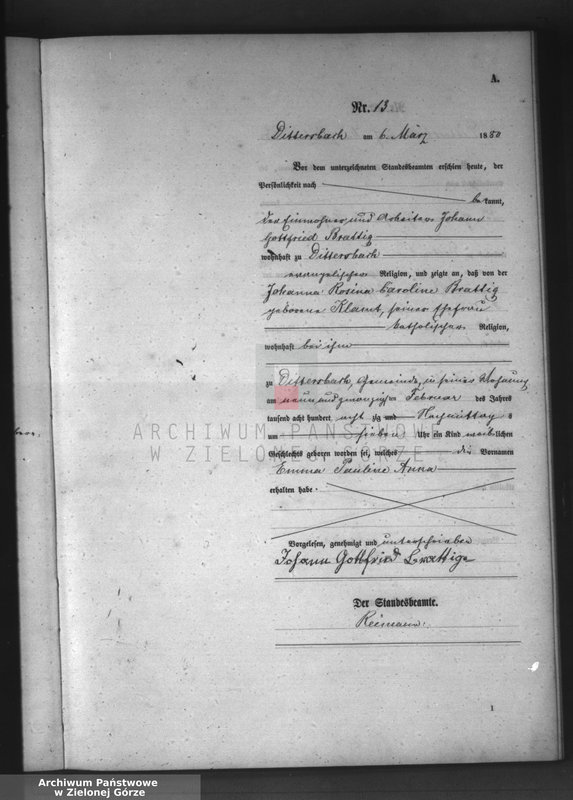 A.
Nr. 13
Dittersbach am 6. März 1880
Vor dem unterzeichneten Standesbeamten erschien heute, der
Persönlichkeit nach
be kannt,
der Einwohner und Arbeiter Johann
Gottfried Brattig
wohnhaft zu Dittersbach
evangelischer Religion, und zeigte an, daß von der
Johanna Rosina Caroline Brattig
geborene Klamt, seiner Ehefrau
katholischer Religion,
wohnhaft bei ihm
zu Dittersbach, Gemeinde, in seiner Wohnung
am neunundzwanzigsten Februar des Jahres
tausend acht hundert acht zig und Nachmittag s
um sieben Uhr ein Kind weiblichen
Geschlechts geboren worden sei, welches die Vornamen
Emma Pauline Anna
erhalten habe.
Vorgelesen, genehmigt und unterschrieben
Johann Gottfried Brattig
Der Standesbeamte.
Reimann.
1
ARCHIWUM PAŃSTWOWE
W ZIELONEJ GÓRZE
Archiwum Państwowe
w Zielonej Górze